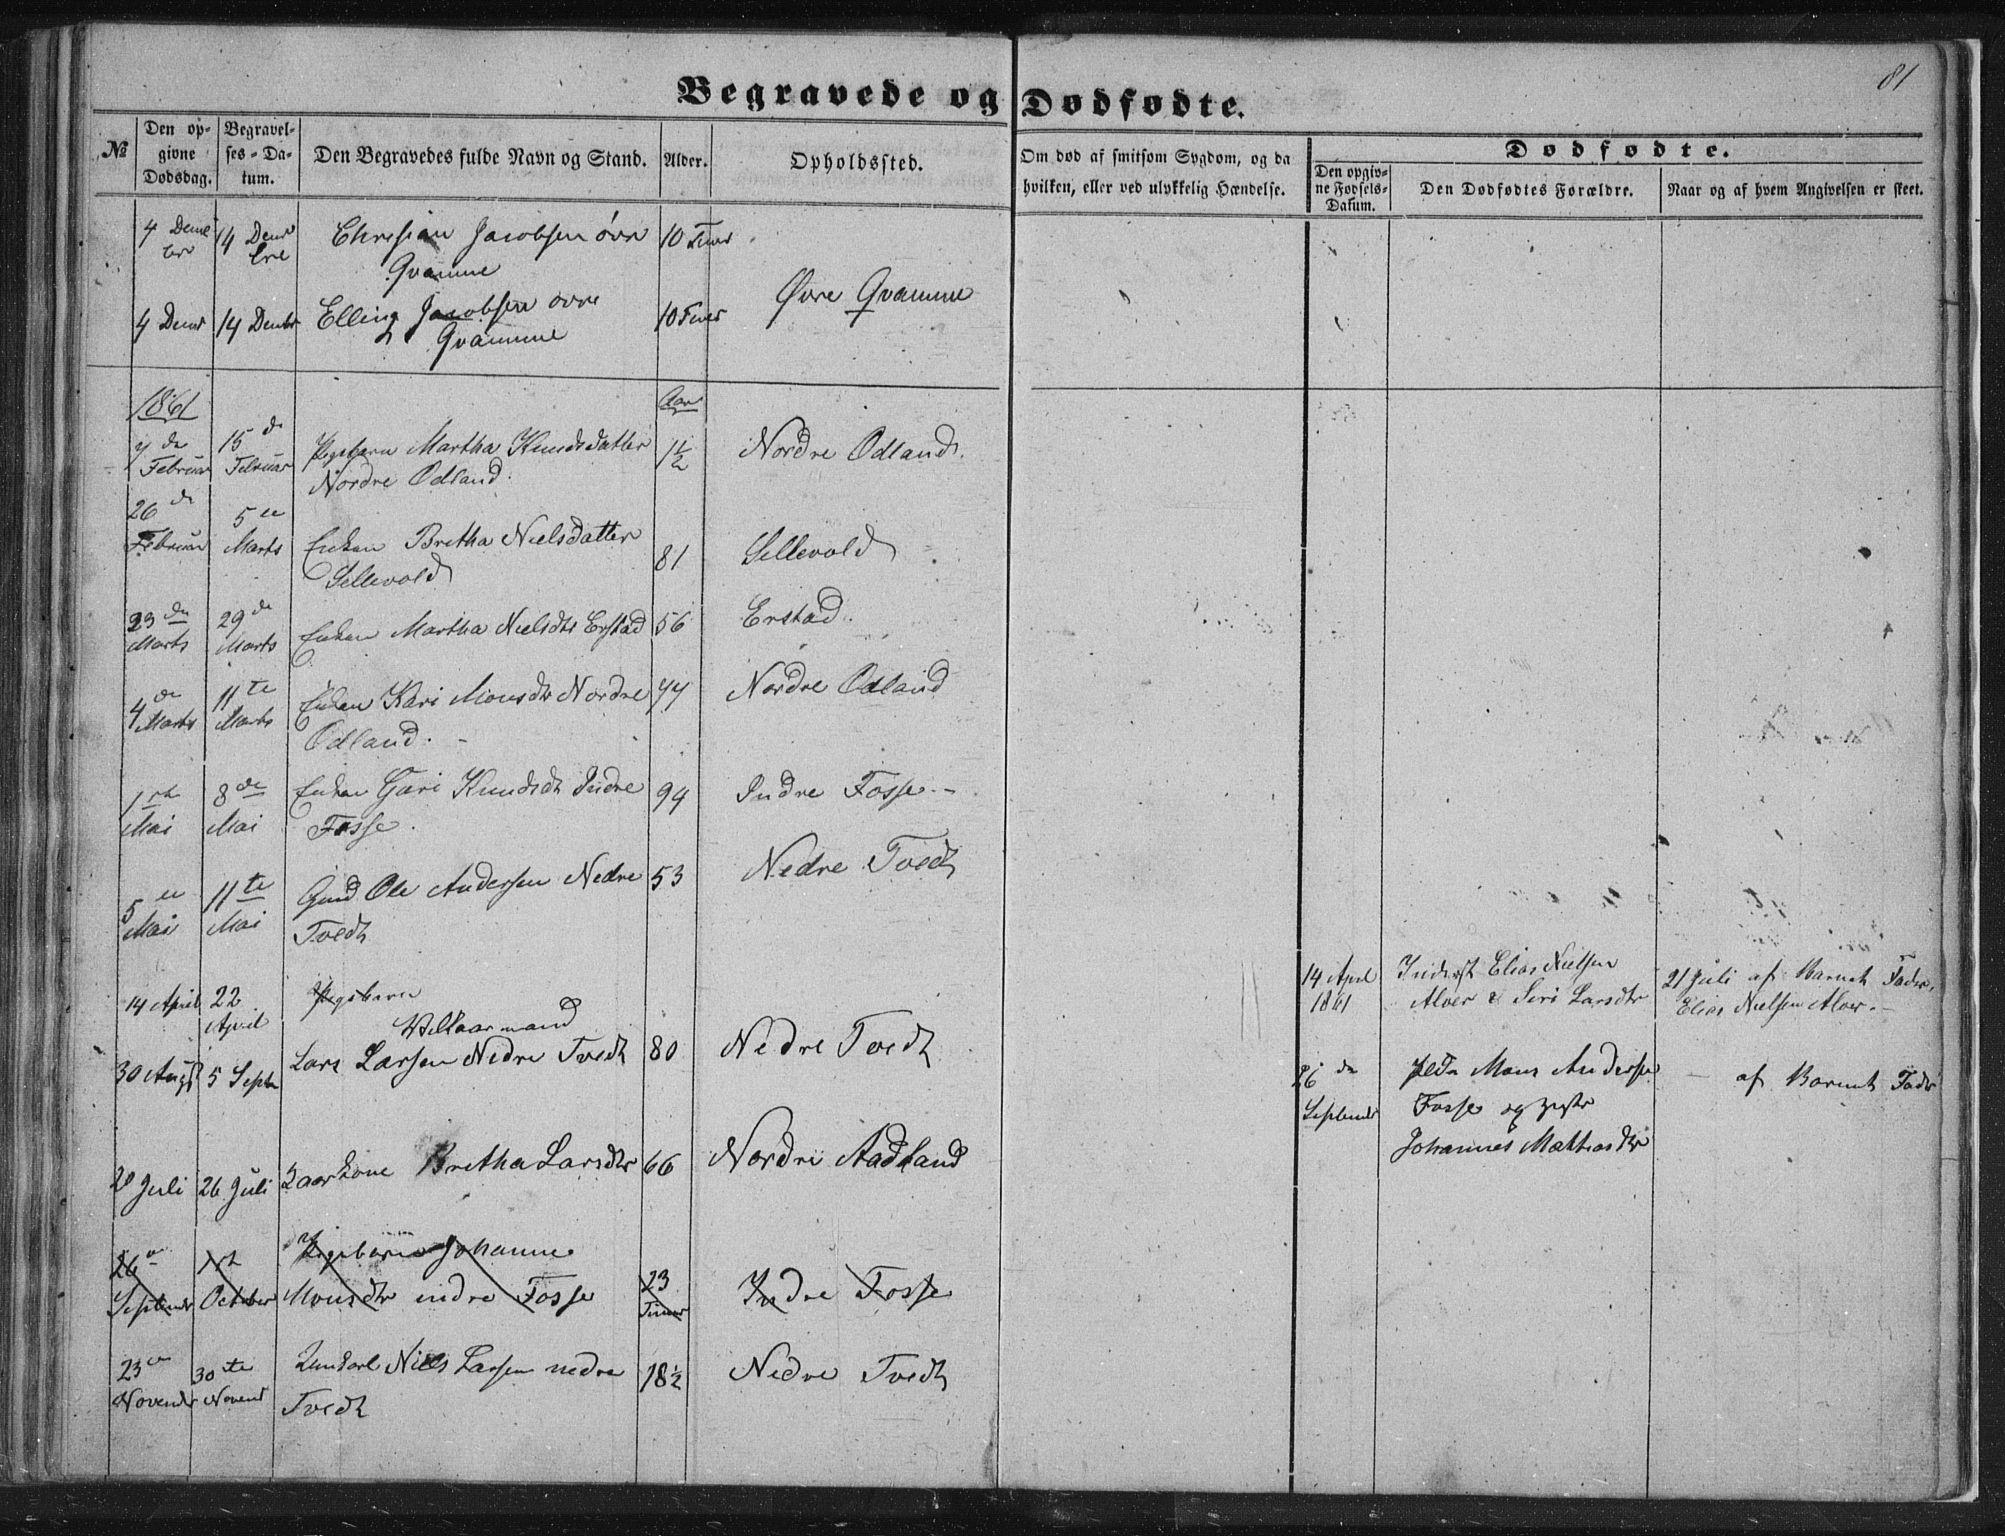 81
Begravede og Dødfødte.
№
Den opgivne Dødsdag.
Begravelses-Datum.
Den Begravedes fulde Navn og Stand.
Alder.
Opholdssted.
Om død af smitsom Sygdom, og da hvilken, eller ved ulykkelig Hændelse.
Dødfødte.
Den opgivne Fødsels-Datum.
Den Dødfødtes Forældre.
Naar og af hvem Angivelsen er skeet.
4 14 Christian Jacobsen øvre 10
Qvamme
Øvre Qvamme
4 14 Elling Jacobsen øvre 10
Qvamme
1861 Aar
7de 15de Pigebarn Martha Knudsdatter 1½ Nordre Odland.
Februar Februar Nordre Odland.
26de 5te
Februar Marts Enken Bretha Nielsdatter 81 Sellevold
Sellevold
23de 29de
Marts Marts Enken Martha Nielsdtr Erstad 56 Erstad.
4de 11te Enken Kari Monsdtr Nordre 77 Nordre Odland
Marts Marts
Odland.
1ste 8de Enken Gari Knudsdtr Indre 94 Indre Fosse
Mai Mai Fosse.
5te 11te Gmd Ole Andersen Nedre 53 Nedre Tvedt
Mai Mai Tvedt
14 April 22 Pigebarn
April
14 April Inderst Elias Nielsen 21 Juli af Barnets Fader,
1861 Alver & Siri Larsdtr Elias Nielsen Alver.
Vilkaarmand
30 Augst 5 Septr Lars Larsen Nedre Tvedt 80 Nedre Tvedt
26de Mons Andersen af Barnets Fader
Fosse og
Johannes Mathiasdtr
20 Juli 26 Juli Kaarkone Bretha Larsdtr 66 Nordre Aadland
26 1ste Pigebarn Johanne
October Monsdtr indre Fosse 23 Indre Fosse
Timer
23 30te Ungkarl Niels Larsen nedre 18½ Nedre Tvedt
Tvedt